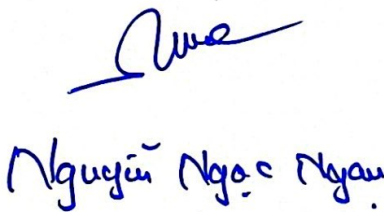 Nguyễn Ngọc Ngạn